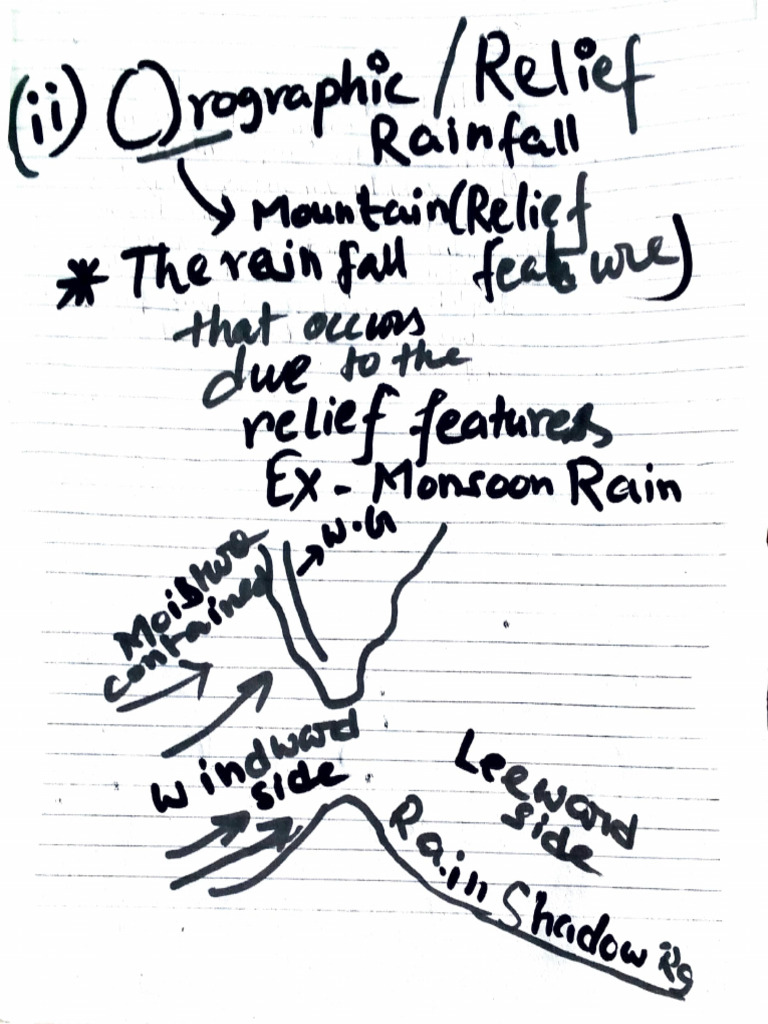 (ii) Orographic / Relief
Rainfall
Mountain (Relief
feature)
* The rainfall
that occurs
due to the
relief features
Ex - Monsoon Rain
W.G
Moisture
contained
Windward
side
Leeward
side
Rain Shadow